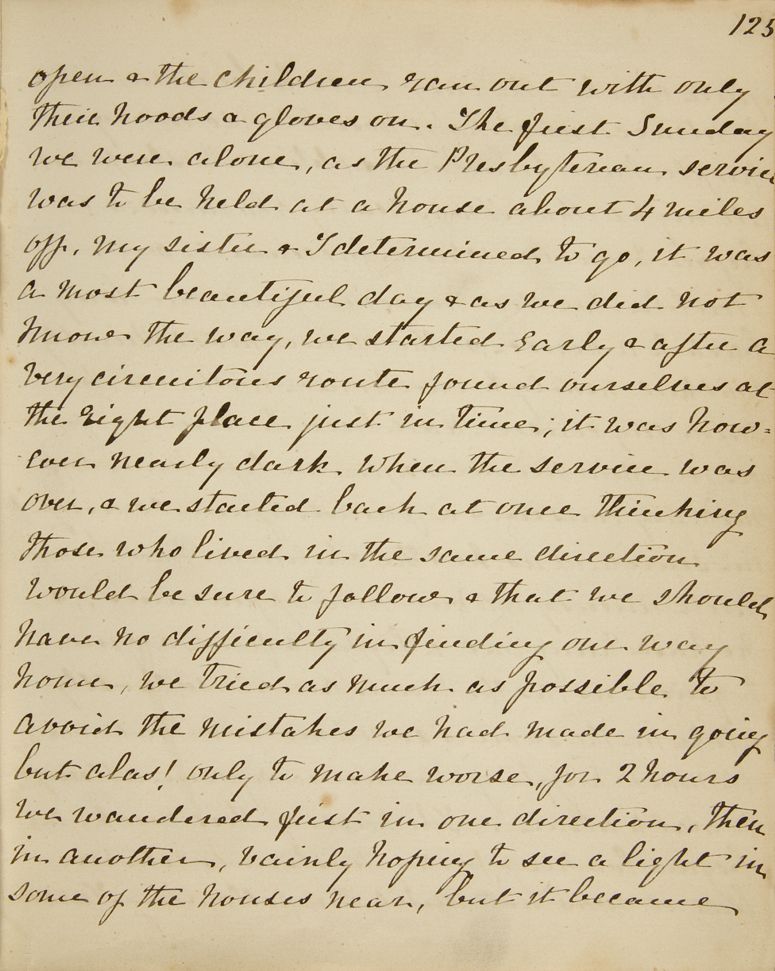 125
open & the children ran out with only
their hoods & gloves on. The first Sunday
we were alone, as the Presbyterian service
was to be held at a house about 4 miles
off, my sister & I determined to go, it was
a most beautiful day & as we did not
know the way, we started early & after a
very circuitous route found ourselves at
the right place just in time; it was how=
ever nearly dark when the service was
over, & we started back at once thinking
those who lived in the same direction
would be sure to follow & that we should
have no difficulty in finding our way
home, we tried as much as possible to
avoid the mistakes we had made in going
but alas! only to make worse, for 2 hours
we wandered first in one direction, then
in another, vainly hoping to see a light in
some of the houses near, but it became